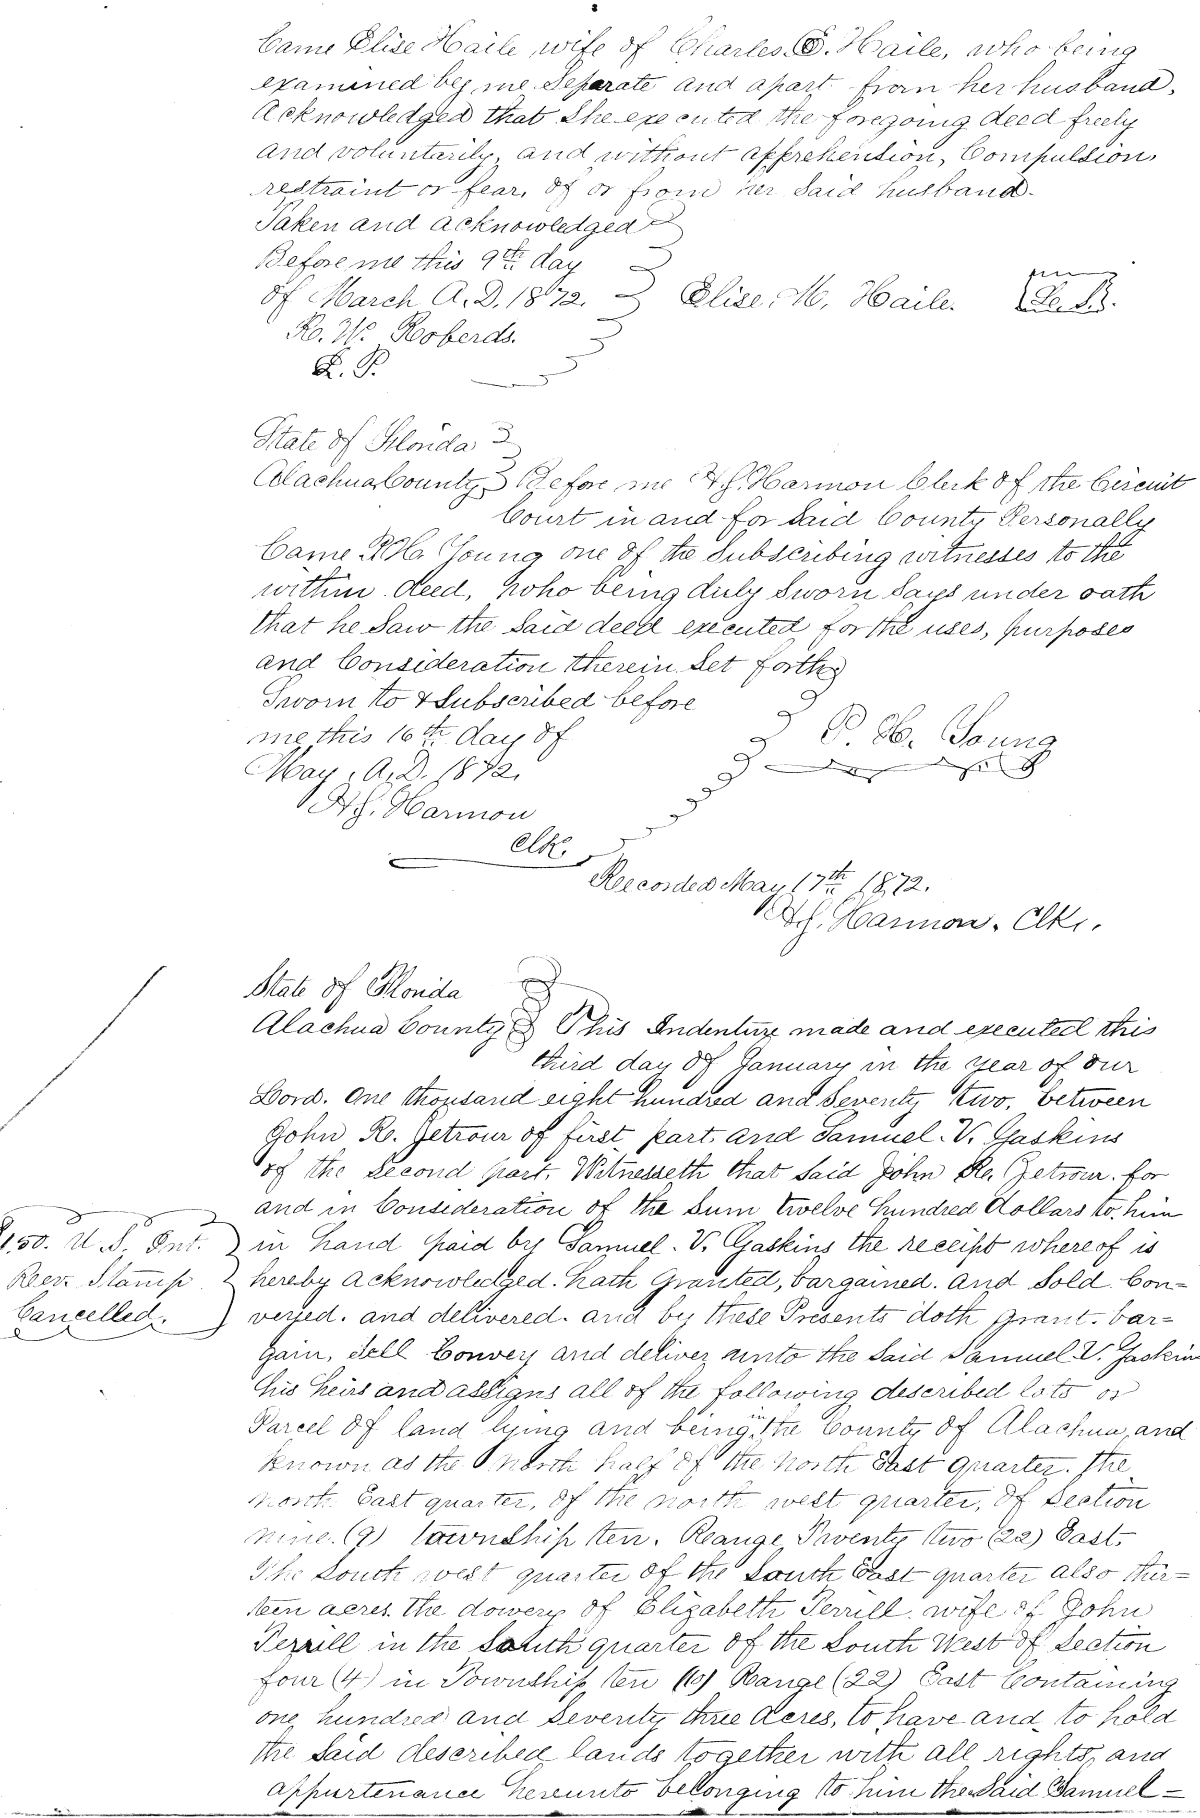 Came Elise Haile wife of Charles E. Haile, who being
examined by me Separate and apart from her husband,
Acknowledged that She executed the foregoing deed freely
and voluntarily, and without apprehension, Compulsion,
restraint or fear, of or from her Said husband.
Taken and acknowledged
Before me this 9th day
of March A.D. 1872. Elise M. Haile. L. S.
R. W. Roberds.
J. P.
State of Florida
Alachua County Before me H.S. Harmon Clerk of the Circuit
Court in and for Said County Personally
Came P.H. Young one of the Subscribing witnesses to the
within deed, who being duly Sworn Says under oath
that he Saw the Said deed executed for the uses, purposes
and Consideration therein Set forth
Sworn to & Subscribed before
me this 16th day of P. H. Young
May, A.D. 1872.
H.S. Harmon
Clk.
Recorded May 17th 1872.
H.S. Harmon. Clk.
State of Florida
Alachua County This Indenture made and executed this
third day of January in the year of our
Lord. One thousand eight hundred and Seventy two, between
John R. Zetrour of first part. and Samuel. V. Gaskins
of the Second part, Witnesseth that Said John R. Zetrour. for
and in Consideration of the Sum twelve hundred dollars to him
in hand paid by Samuel. V. Gaskins the receipt whereof is
hereby acknowledged. hath Granted, bargained. and Sold Con=
veyed. and delivered. and by these Presents doth grant. bar=
gain, Sell Convey and deliver unto the Said Samuel V. Gaskins
his heirs and assigns all of the following described lots or
Parcel of land lying and being in the County of Alachua, and
known as the North half of the North East quarter. the
North East quarter, of the north west quarter, of Section
nine. (9) township ten. Reange Twenty two (22) East.
The South west quarter of the South East quarter also thir=
teen acres the dowery of Elizabeth Perrill wife of John
Perrill in the South quarter of the South West of Section
four (4) in Township ten (10) Range (22) East Containing
one hundred and Seventy three Acres, to have and to hold
the Said described lands together with all rights, and
appurtenance hereunto belonging to him the Said Samuel=
$1.50. U.S. Int.
Rev. Stamp
Cancelled.